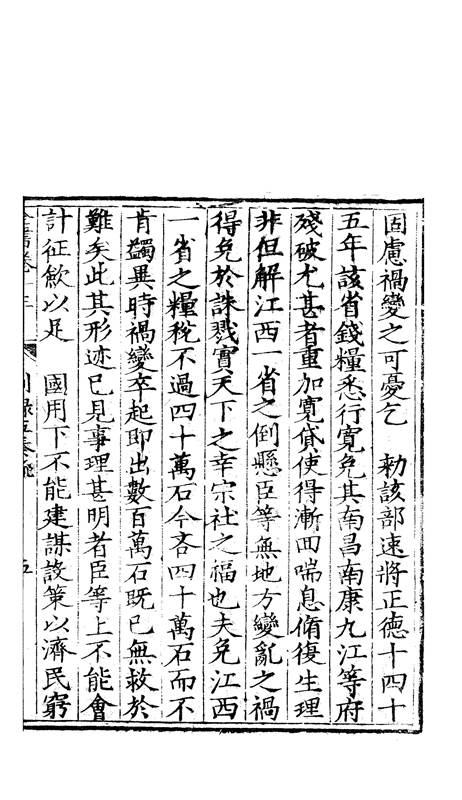 固慮禍變之可憂乞　勑該部速將正德十四十
五年該省錢糧悉行寬免其南昌南康九江等府
殘破尤甚者重加寬貸使得漸回喘息脩復生理
非但解江西一省之倒懸臣等無地方變亂之禍
得免於誅戮實天下之幸宗社之福也夫免江西
一省之糧稅不過四十萬石今吝四十萬石而不
肯蠲異時禍變卒起即出數百萬石既已無救於
難矣此其形迹已見事理甚明者臣等上不能會
計征歛以足　國用下不能建謀設策以濟民窮
全書卷十三　別錄五奏疏　五